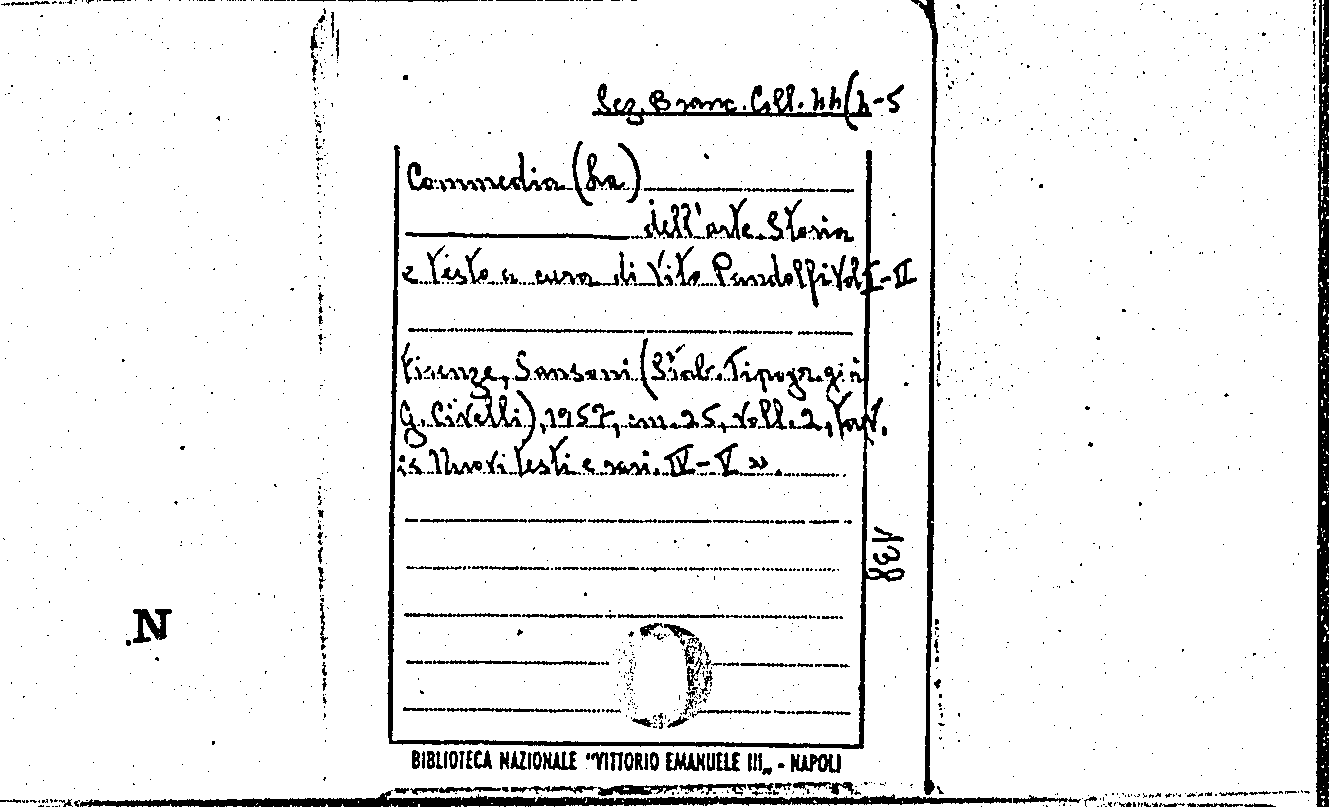 Sez. Branc. Coll. hh(h-5
Commedia (La)
dell'arte. Storia
e testo a cura di Vito Pandolfi Vol I-II
Firenze, Sansoni (Stab. Tipogr. già
G. Civelli), 1957, cm. 25, voll. 2,
Nuovi testi e rari. IV-V».
138
N
BIBLIOTECA NAZIONALE "VITTORIO EMANUELE III„ - NAPOLI